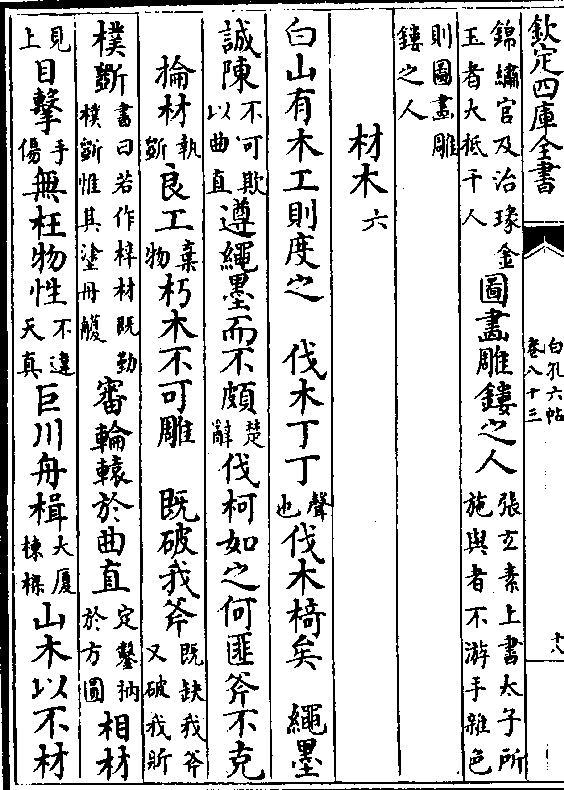 欽定四庫全書
白孔六帖
卷八十三
十八
錦繡官及治瑑金玉者大抵千人圖畫雕鏤之人張玄素上書太子所施與者不游手雜色
則圖畫雕鏤之人
材木六
白山有木工則度之 伐木丁丁聲也伐木掎矣 繩墨
誠陳不可欺以曲直遵繩墨而不頗楚辭伐柯如之何匪斧不克
掄材執斲良工棄物朽木不可雕 既破我斧既缺我斧又破我斨
樸斲書曰若作梓材既勤樸斲惟其塗丹雘審輪轅於曲直定鑿枘於方圓相材
見上目擊手傷無枉物性不違天真巨川舟楫大厦棟樑山木以不材